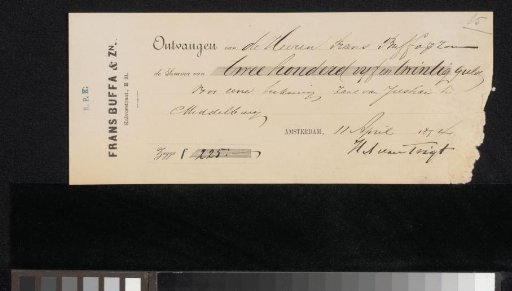 15
Ontvangen van de Heeren Frans Buffa & Zon
de Somma van twee honderd vijf en twintig Guld.
voor eene teekening Zaal van Justitie te
Middelburg
AMSTERDAM, 11 April 18
Zegge f 225.-
H A van Trigt
R. P. K.
FRANS BUFFA & ZN.
Kalverstraat, E 39.